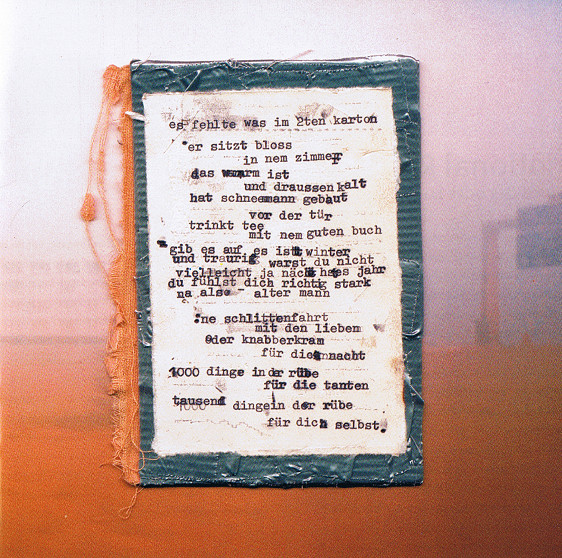 es fehlte was im 2ten karton
er sitzt bloss
in nem zimmer
das warm ist
und draussen kalt
hat schneemann gebaut
vor der tür
trinkt tee
mit nem guten buch
gib es auf es ist winter
und traurig warst du nicht
vielleicht ja nächstes jahr
du fühlst dich richtig stark
na also - alter mann
ne schlittenfahrt
mit den lieben
oder knabberkram
für die nacht
1000 dinge in der rübe
für die tanten
tausend
1000 dinge in der rübe
für dich selbst.